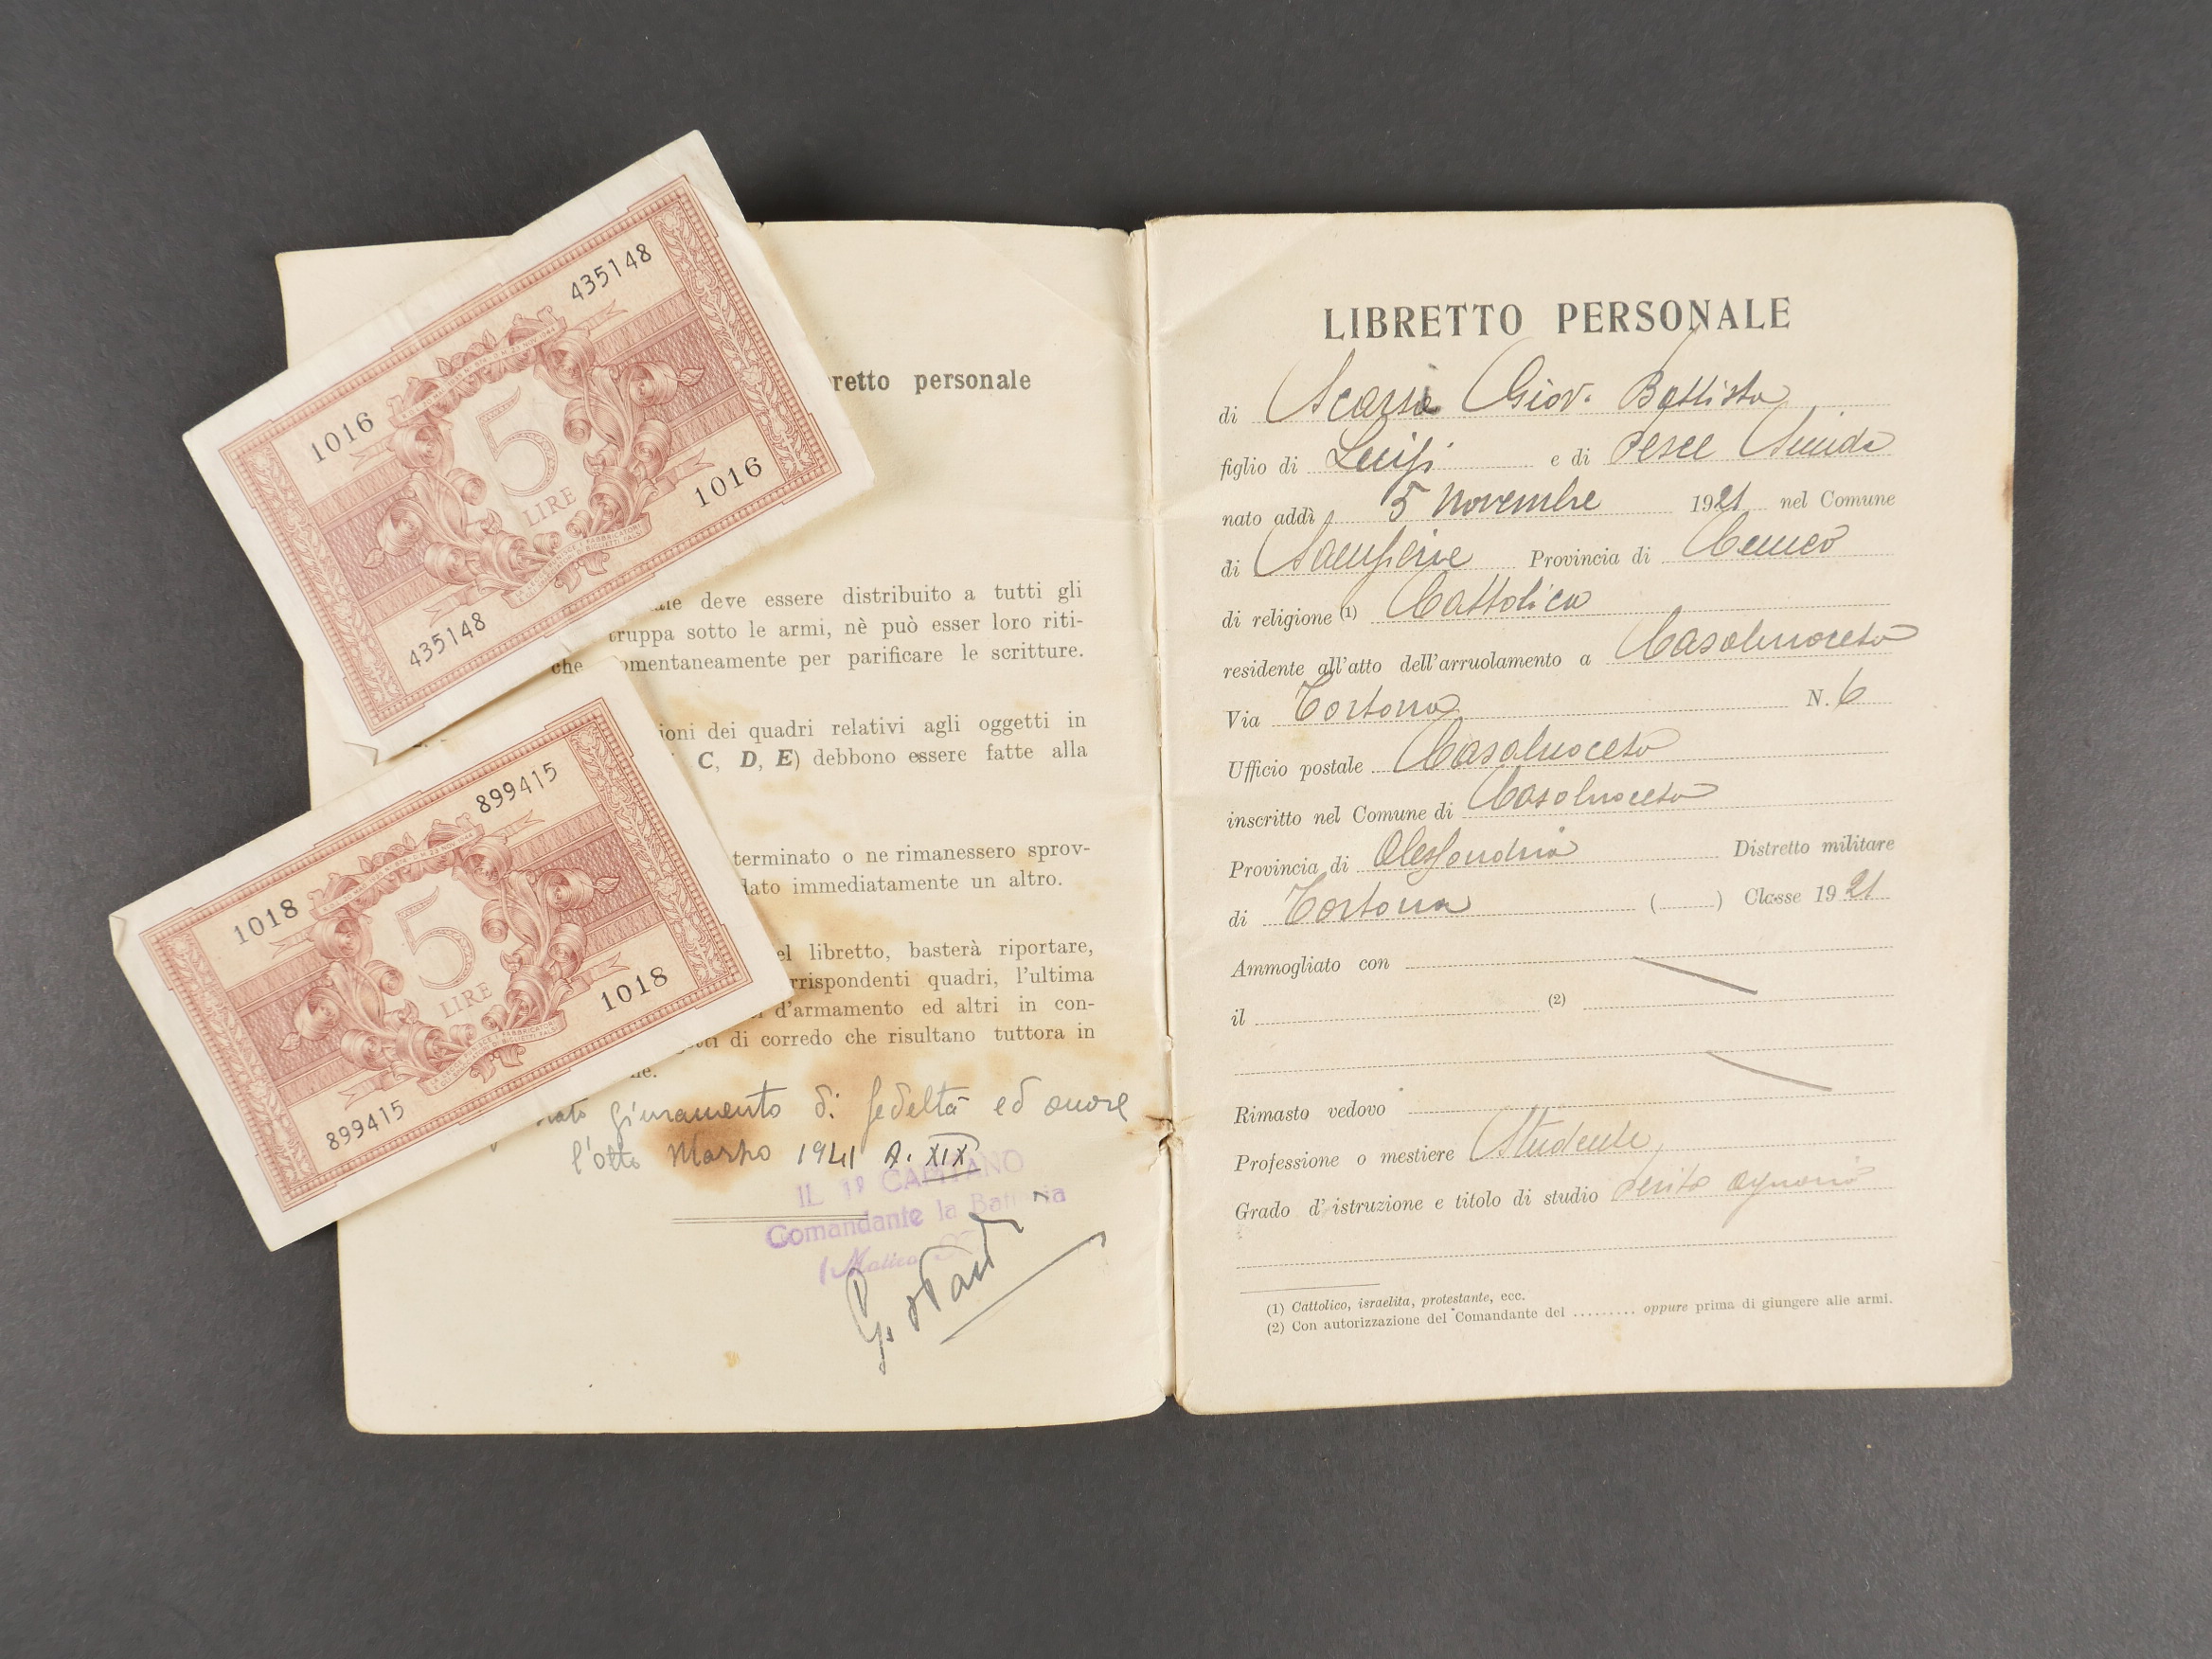 435148
1016
5
LIRE
1016
435148
899415
1018
5
LIRE
1018
899415
retto personale
deve essere distribuito a tutti gli
truppa sotto le armi, nè può esser loro riti-
che omentaneamente per parificare le scritture.
ioni dei quadri relativi agli oggetti in
C, D, E) debbono essere fatte alla
terminato o ne rimanessero sprov-
dato immediatamente un altro.
el libretto, basterà riportare,
rrispondenti quadri, l'ultima
d'armamento ed altri in con-
getti di corredo che risultano tuttora in
ne.
giuramento di fedeltà ed onore
l'otto Marzo 1941 A. XIX
IL 1º CAPITANO
Comandante la Batteria
LIBRETTO PERSONALE
di Giov. Battista
figlio di Luigi e di Pesce
nato addì 5 Novembre 1921 nel Comune
di Provincia di Cuneo
di religione (1) Cattolica
residente all'atto dell'arruolamento a Casalnoceto
Via Tortona N. 6
Ufficio postale Casalnoceto
inscritto nel Comune di Casalnoceto
Provincia di Alessandria Distretto militare
di Tortona (......) Classe 1921
Ammogliato con
il (2)
Rimasto vedovo
Professione o mestiere Studente
Grado d'istruzione e titolo di studio Perito
(1) Cattolico, israelita, protestante, ecc.
(2) Con autorizzazione del Comandante del ......... oppure prima di giungere alle armi.